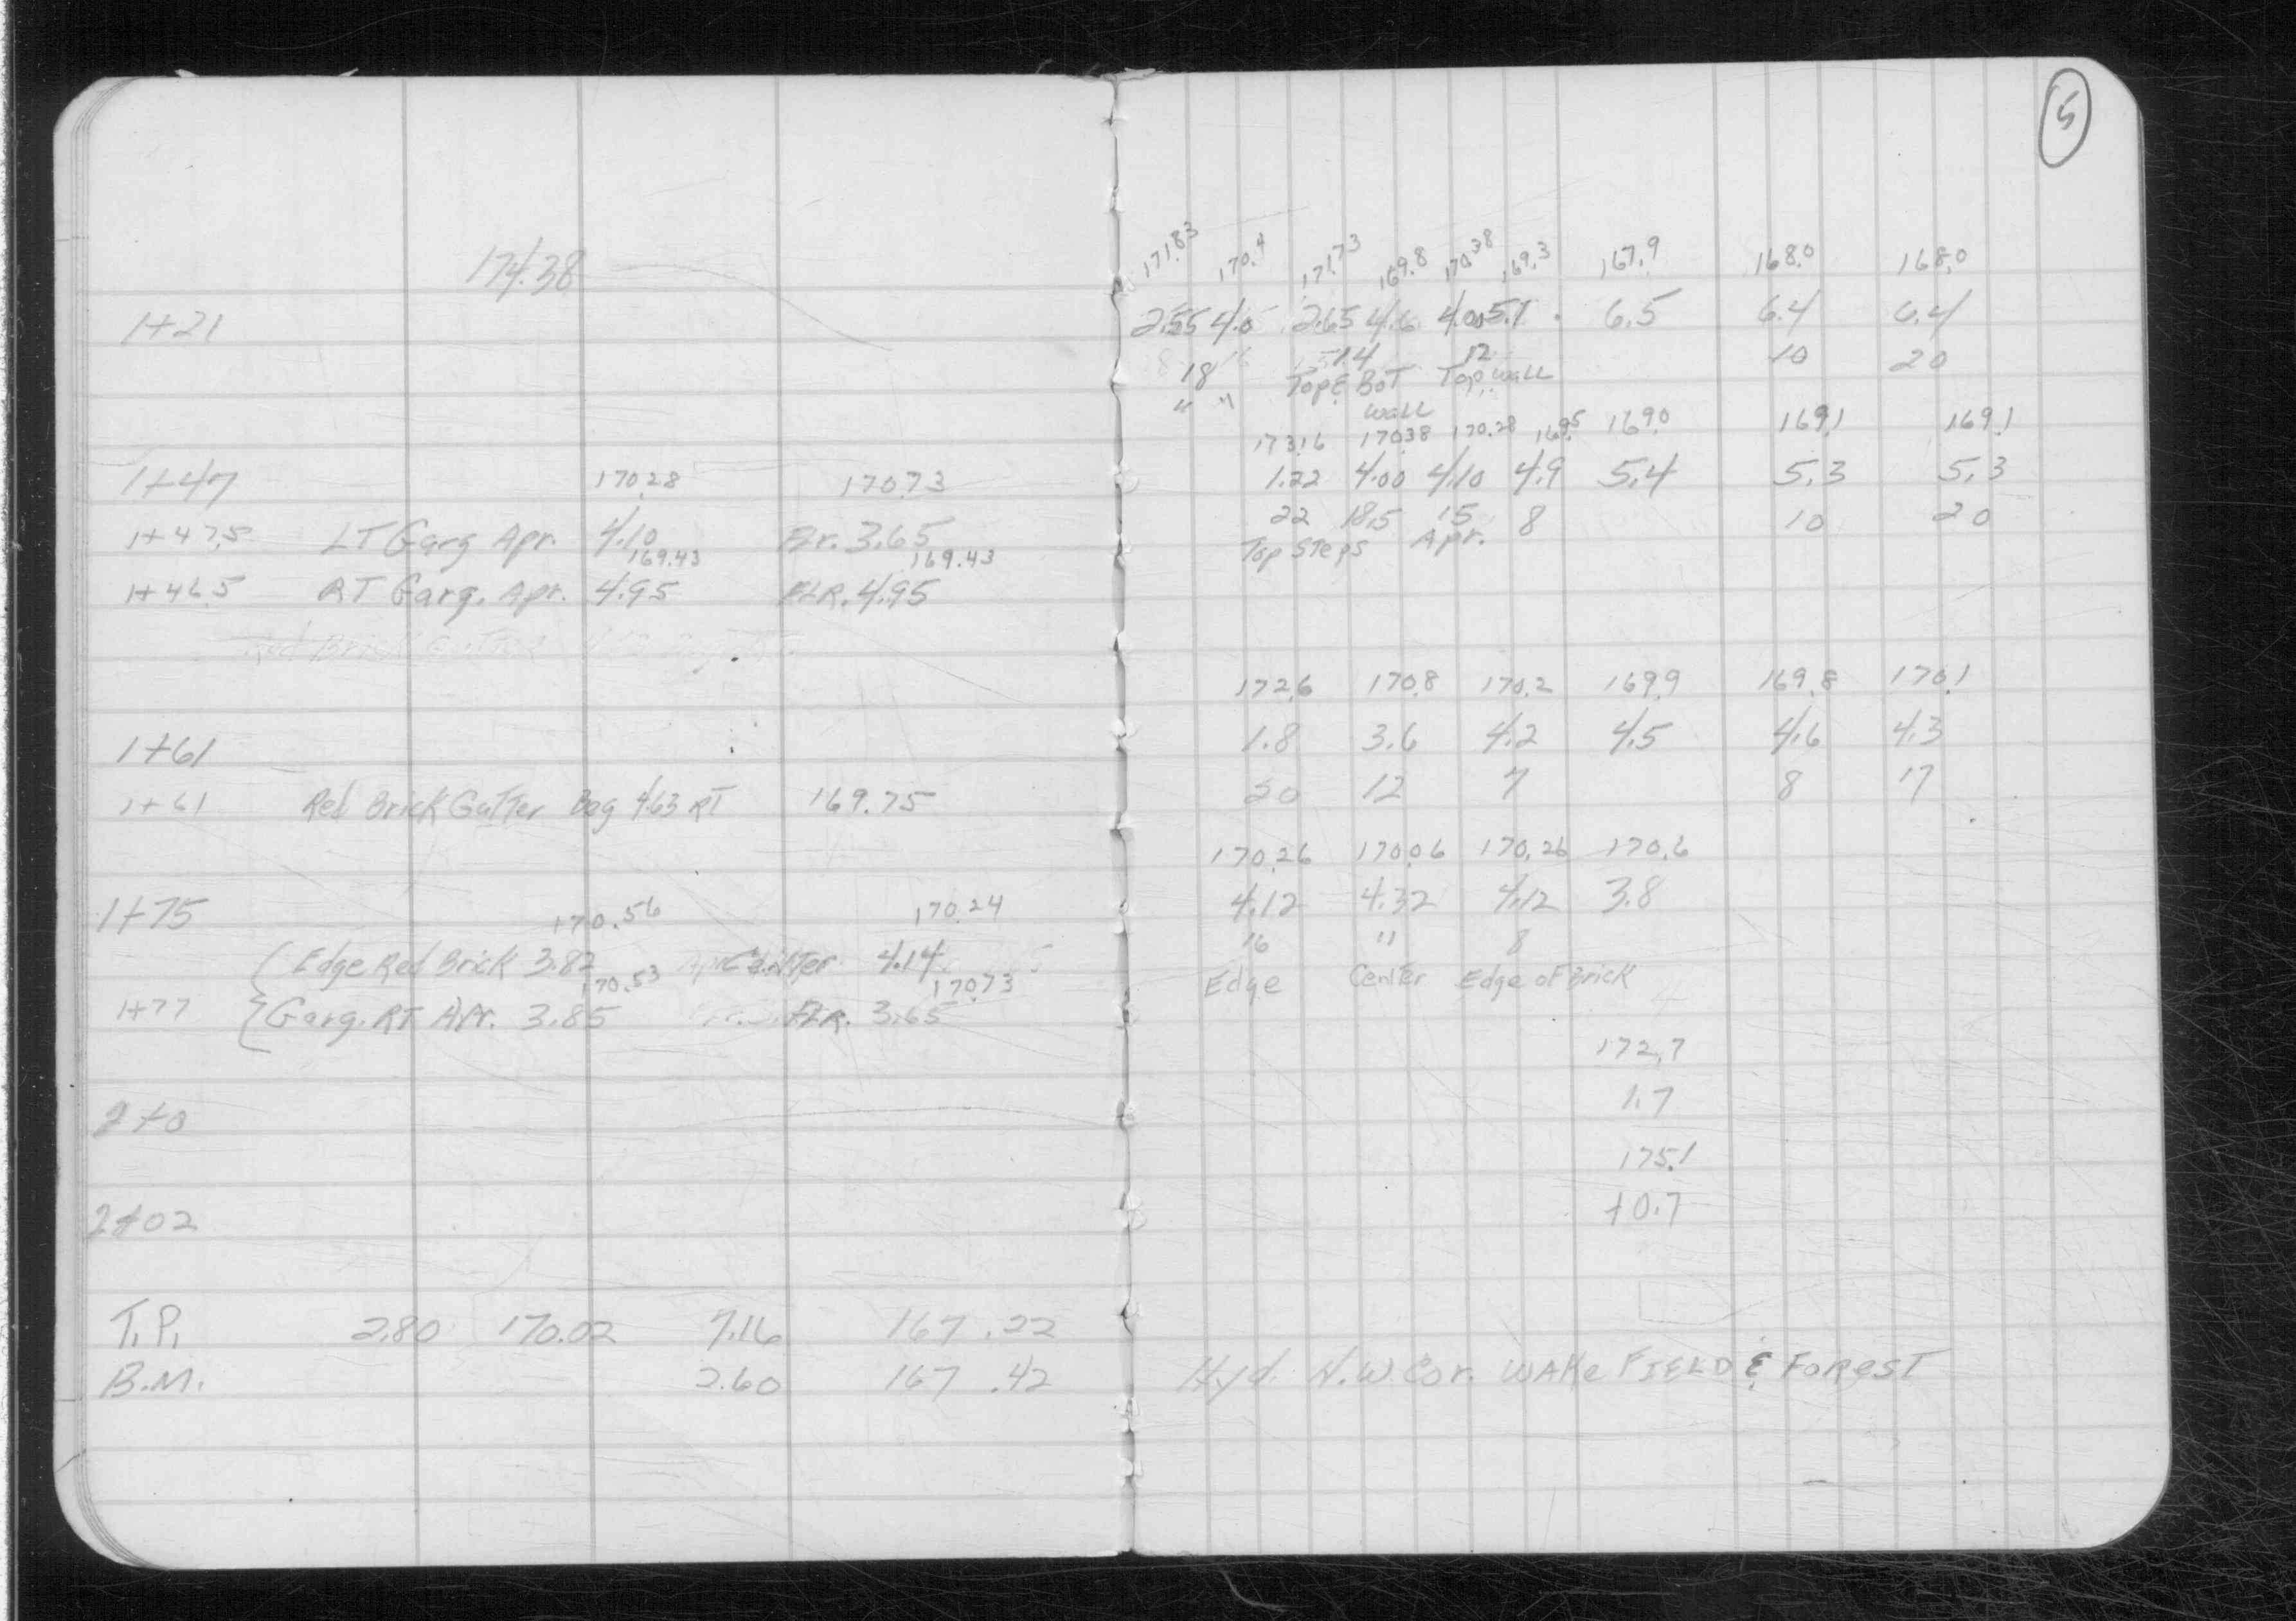 174.38
1+21
1+47 170.28 170.73
1+47.5 LT Garg Apr. 4.10 Flr. 3.65
169.43 169.43
1+46.5 RT Garg. Apr. 4.95 FLR. 4.95
Red Brick Gutter
1+61
1+61 Red Brick Gutter Beg 4.63 RT 169.75
1+75 170.56 170.24
Edge Red Brick 3.82 Center 4.14
170.53 170.73
1+77 Garg. RT Apr. 3.85 FLR. 3.65
2+0
2+02
T.P. 2.80 170.02 7.16 167.22
B.M. 2.60 167.42
5
171.83 170.4 171.73 169.8 170.38 169.3 167.9 168.0 168.0
2.55 4.0 2.65 4.6 4.00 5.1 6.5 6.4 6.4
18 14 12 10 20
" " Top & Bot Top wall
wall
173.16 170.38 170.28 169.5 169.0 169.1 169.1
1.22 4.00 4.10 4.9 5.4 5.3 5.3
22 18.5 15 8 10 20
Top Steps Apr.
172.6 170.8 170.2 169.9 169.8 170.1
1.8 3.6 4.2 4.5 4.6 4.3
20 12 7 8 17
170.26 170.06 170.26 170.6
4.12 4.32 4.12 3.8
16 11 8
Edge Center Edge of Brick
172.7
1.7
175.1
+0.7
Hyd. N.W. Cor. WAKEFIELD & FOREST